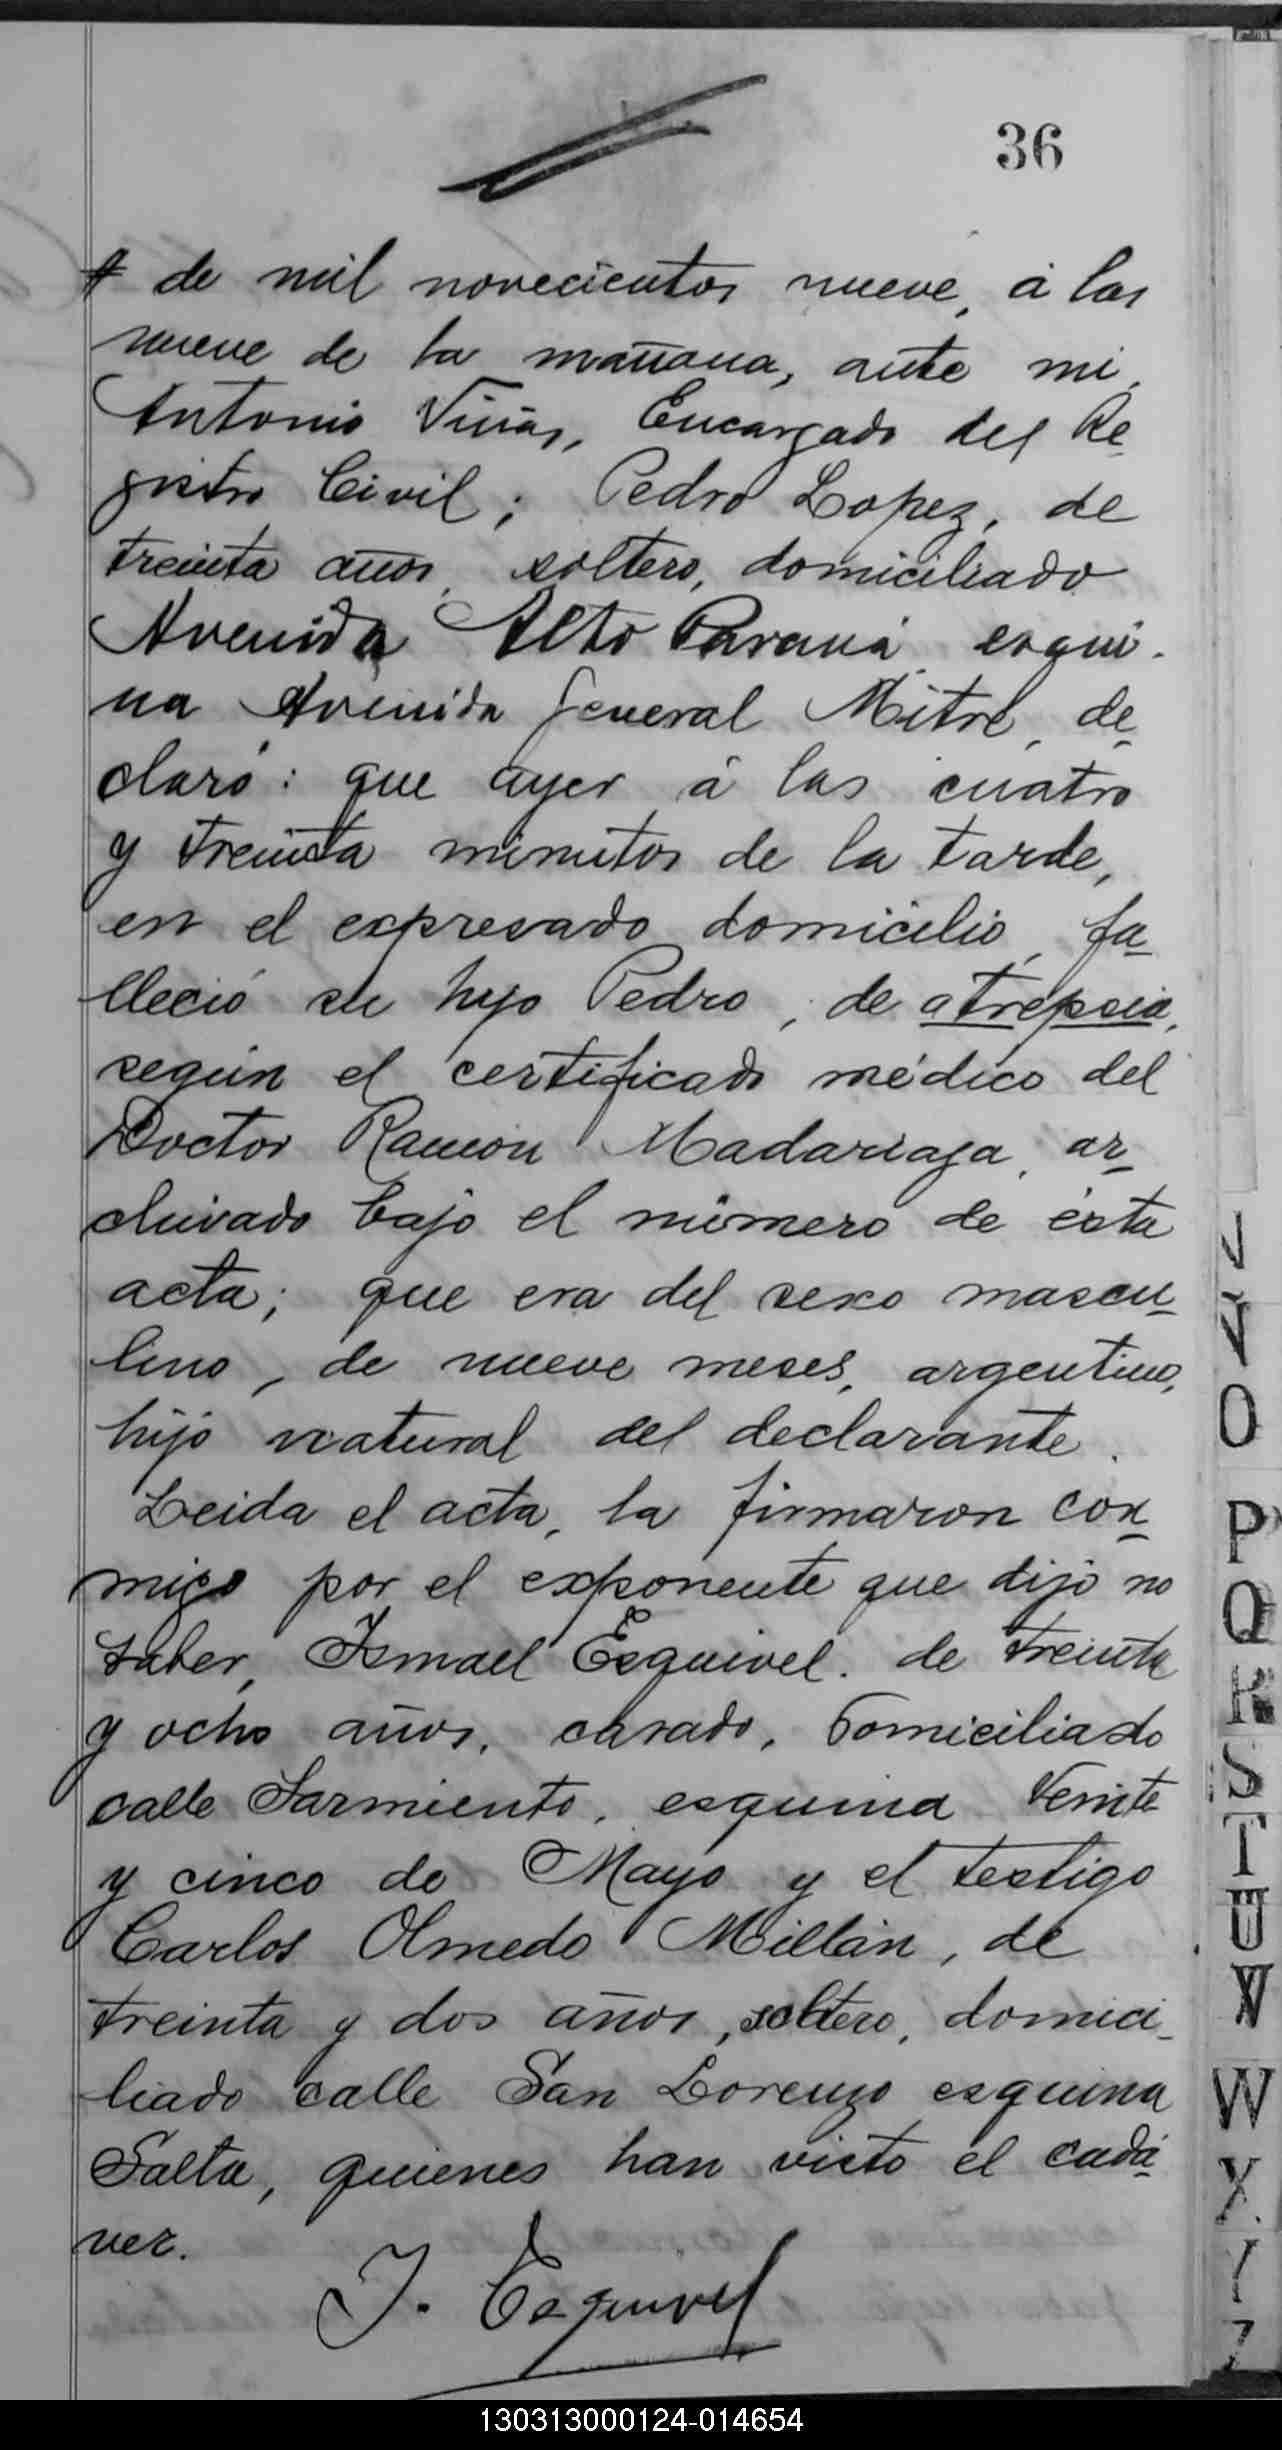 36
de mil novecientos nueve, á las
nueve de la mañana, ante mi,
Antonio Viñas, Encargado del Re_
gistro Civil; Pedro Lopez, de
treinta años, soltero, domiciliado
Avenida Alto Paraná esqui-
na Avenida General Mitre, de_
claró: que ayer á las cuatro
y treinta minutos de la tarde,
en el expresado domicilio, fa_
lleció su hijo Pedro, de atrepsia,
según el certificado médico del
Doctor Ramón Madariaga, ar_
chivado bajo el número de ésta
acta; que era del sexo mascu_
lino, de nueve meses, argentino,
hijo natural del declarante.
Leida el acta, la firmaron con_
migo por el exponente que dijo no
saber, Ismael Esquivel. de treinta
y ocho años, casado, domiciliado
calle Sarmiento, esquina Veinte
y cinco de Mayo y el testigo
Carlos Olmedo Millán, de
treinta y dos años, soltero, domici_
liado calle San Lorenzo esquina
Salta, quienes han visto el cadá_
ver.
J. Esquivel
J
V
O
P
Q
R
S
T
U
V
W
X
Y
Z
130313000124-014654